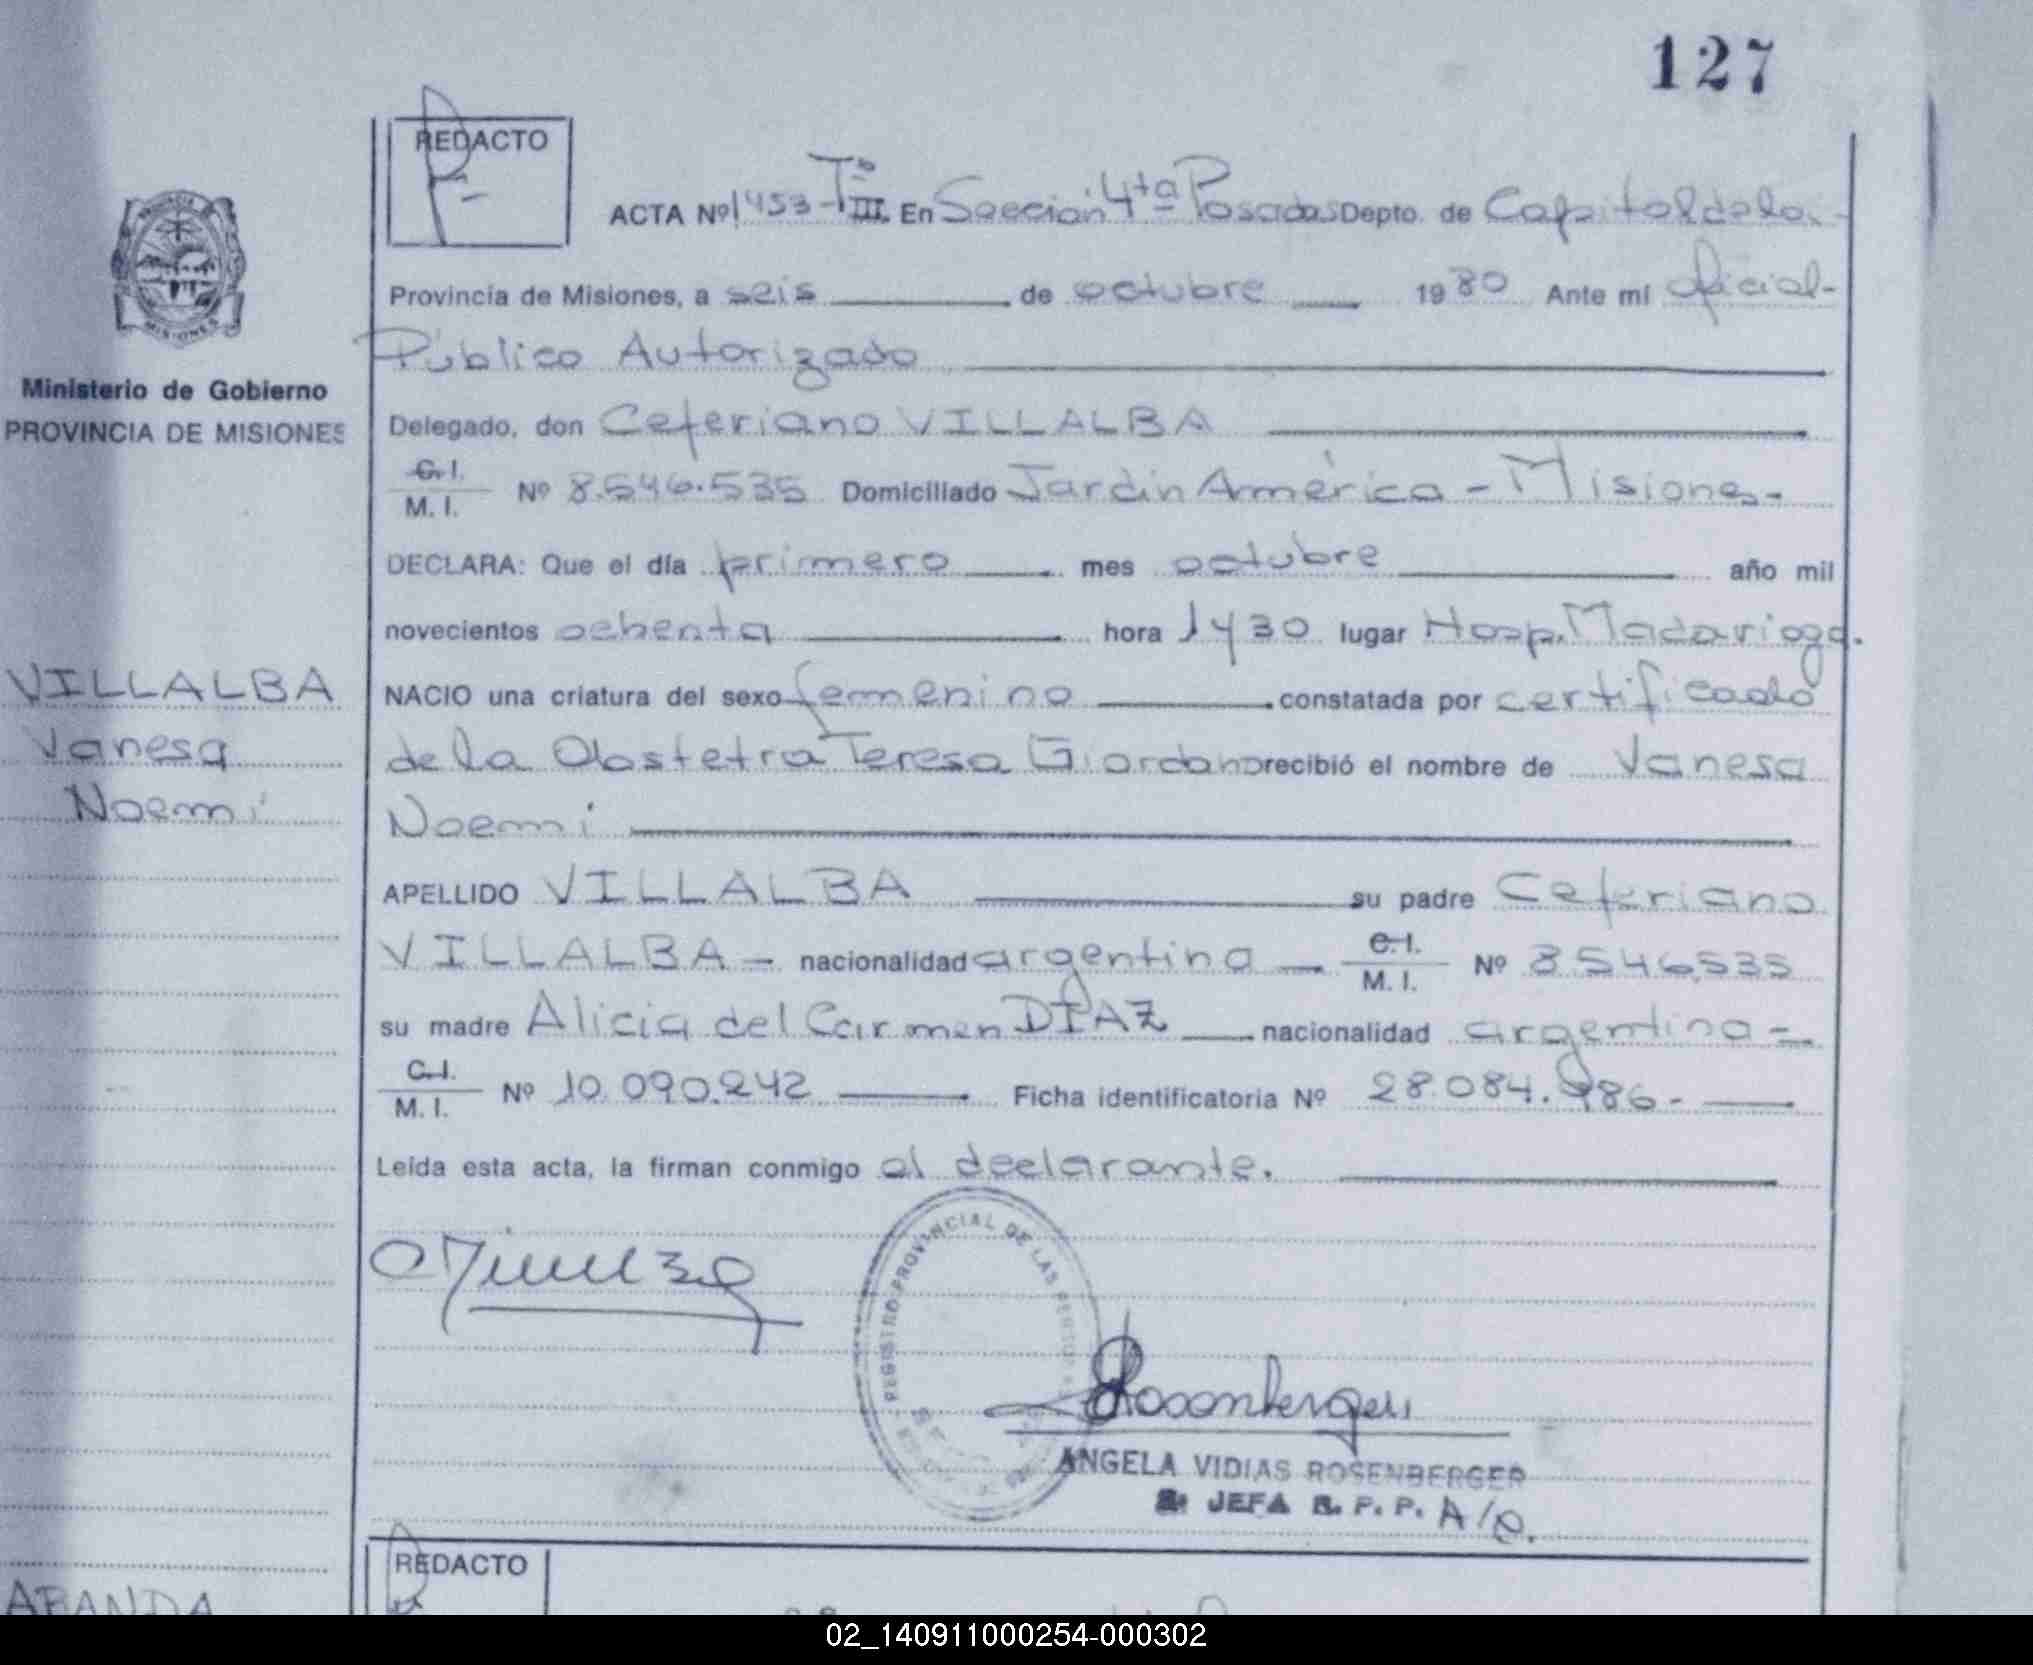 127
REDACTO
ACTA Nº 1453-Tº III. En Sección 4ta Posadas Depto. de Capital de la-
Provincia de Misiones, a seis de octubre 1980 Ante mi oficial-
Público Autorizado
Ministerio de Gobierno
PROVINCIA DE MISIONES
Delegado, don Ceferiano VILLALBA
C.I.
M. I. Nº 8.546.535 Domiciliado Jardín América - Misiones-
DECLARA: Que el día primero mes octubre año mil
novecientos ochenta hora 1430 lugar Hosp. Madariaga.
VILLALBA
Vanesa
Noemí
NACIO una criatura del sexo femenino constatada por certificado
de la Obstetra Teresa Giordano recibió el nombre de Vanesa
Noemí
APELLIDO VILLALBA su padre Ceferiano
VILLALBA - nacionalidad argentina C.I.
M. I. Nº 8.546.535
su madre Alicia del Carmen DÍAZ nacionalidad argentina-
C.I.
M. I. Nº 10.090.242 Ficha identificatoria Nº 28.084.986-
Leída esta acta, la firman conmigo el declarante.
REGISTRO PROVINCIAL DE LAS
Rosenberger
ANGELA VIDIAS ROSENBERGER
JEFA R. P. P. A/C.
REDACTO
02_140911000254-000302